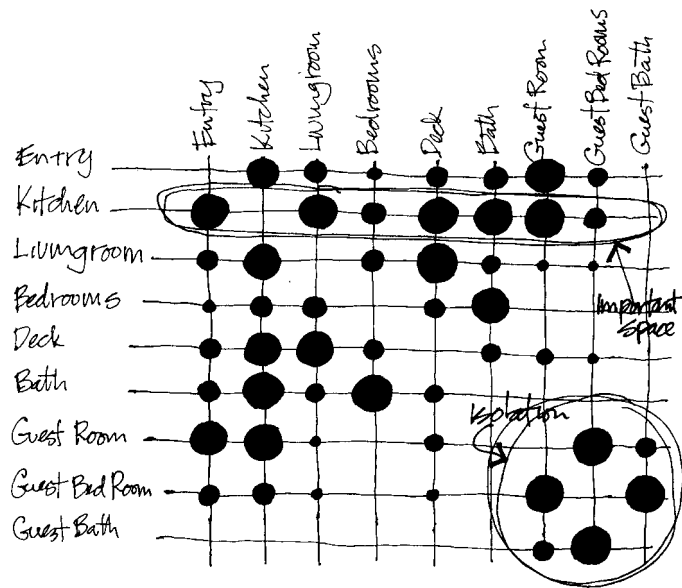 Entry
Kitchen
Livingroom
Bedrooms
Deck
Bath
Guest Room
Guest Bed Rooms
Guest Bath
Entry
Kitchen
Livingroom
Bedrooms
Deck
Bath
Guest Room
Guest Bed Room
Guest Bath
Important
Space
Isolation